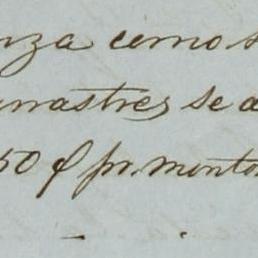 nza como s
arrastres se a
50 p pr. monto